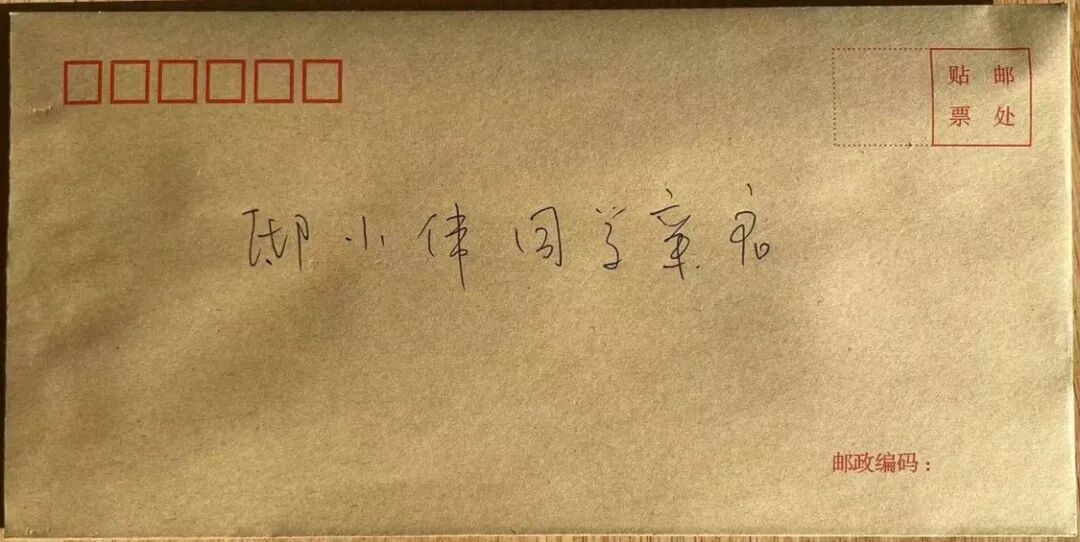 贴 邮
票 处
邸小伟同学亲启
邮政编码：